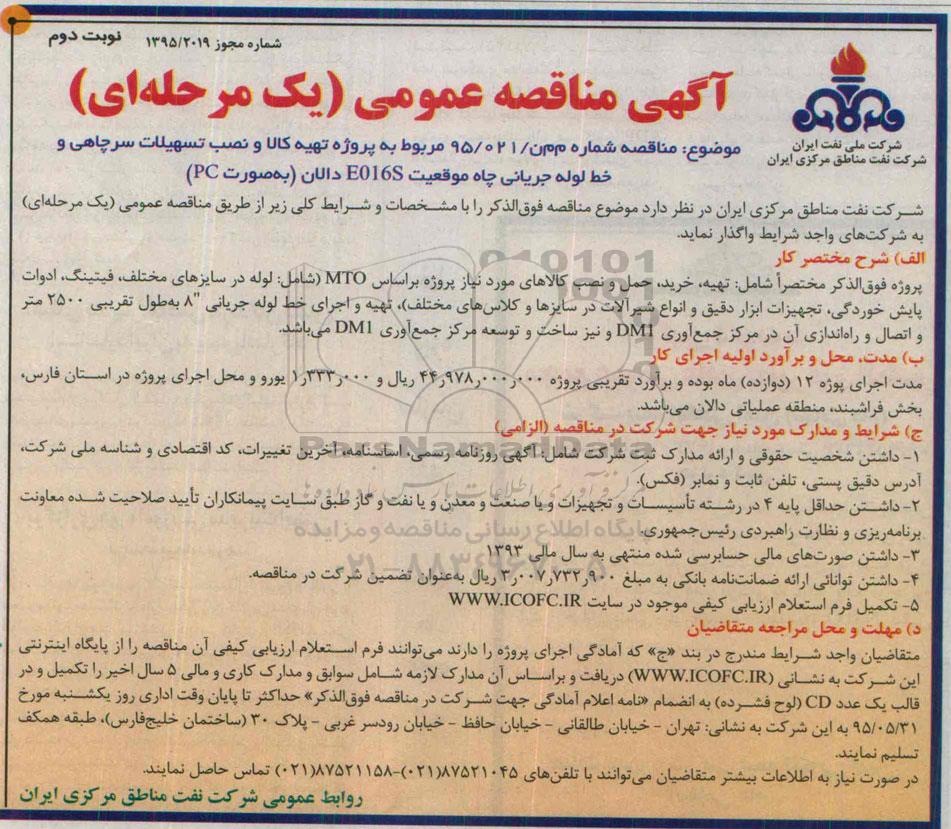 نوبت دوم
شماره مجوز ۱۳۹۵/۲۰۱۹
شرکت ملی نفت ایران
شرکت نفت مناطق مرکزی ایران
آگهی مناقصه عمومی (یک مرحله‌ای)
موضوع: مناقصه شماره م‌م‌ن/۹۵/۰۲۱ مربوط به پروژه تهیه کالا و نصب تسهیلات سرچاهی و
خط لوله جریانی چاه موقعیت E016S دالان (به‌صورت PC)
شرکت نفت مناطق مرکزی ایران در نظر دارد موضوع مناقصه فوق‌الذکر را با مشخصات و شرایط کلی زیر از طریق مناقصه عمومی (یک مرحله‌ای)
به شرکت‌های واجد شرایط واگذار نماید.
الف) شرح مختصر کار
پروژه فوق‌الذکر مختصراً شامل: تهیه، خرید، حمل و نصب کالاهای مورد نیاز پروژه براساس MTO (شامل: لوله در سایزهای مختلف، فیتینگ، ادوات
پایش خوردگی، تجهیزات ابزار دقیق و انواع شیرآلات در سایزها و کلاس‌های مختلف)، تهیه و اجرای خط لوله جریانی "۸ به‌طول تقریبی ۲۵۰۰ متر
و اتصال و راه‌اندازی آن در مرکز جمع‌آوری DM1 و نیز ساخت و توسعه مرکز جمع‌آوری DM1 می‌باشد.
ب) مدت، محل و برآورد اولیه اجرای کار
مدت اجرای پوژه ۱۲ (دوازده) ماه بوده و برآورد تقریبی پروژه ۴۴٫۹۷۸٫۰۰۰٫۰۰۰ ریال و ۱٫۳۳۳٫۰۰۰ یورو و محل اجرای پروژه در استان فارس،
بخش فراشبند، منطقه عملیاتی دالان می‌باشد.
ج) شرایط و مدارک مورد نیاز جهت شرکت در مناقصه (الزامی)
۱- داشتن شخصیت حقوقی و ارائه مدارک ثبت شرکت شامل: آگهی روزنامه رسمی، اساسنامه، آخرین تغییرات، کد اقتصادی و شناسه ملی شرکت،
آدرس دقیق پستی، تلفن ثابت و نمابر (فکس).
۲- داشتن حداقل پایه ۴ در رشته تأسیسات و تجهیزات و یا صنعت و معدن و یا نفت و گاز طبق سایت پیمانکاران تأیید صلاحیت شده معاونت
برنامه‌ریزی و نظارت راهبردی رئیس‌جمهوری
۳- داشتن صورت‌های مالی حسابرسی شده منتهی به سال مالی ۱۳۹۳
۴- داشتن توانائی ارائه ضمانت‌نامه بانکی به مبلغ ۳٫۰۰۷٫۷۳۲٫۹۰۰ ریال به‌عنوان تضمین شرکت در مناقصه.
۵- تکمیل فرم استعلام ارزیابی کیفی موجود در سایت WWW.ICOFC.IR
د) مهلت و محل مراجعه متقاضیان
متقاضیان واجد شرایط مندرج در بند «ج» که آمادگی اجرای پروژه را دارند می‌توانند فرم استعلام ارزیابی کیفی آن مناقصه را از پایگاه اینترنتی
این شرکت به نشانی (WWW.ICOFC.IR) دریافت و براساس آن مدارک لازمه شامل سوابق و مدارک کاری و مالی ۵ سال اخیر را تکمیل و در
قالب یک عدد CD (لوح فشرده) به انضمام «نامه اعلام آمادگی جهت شرکت در مناقصه فوق‌الذکر» حداکثر تا پایان وقت اداری روز یکشنبه مورخ
۹۵/۰۵/۳۱ به این شرکت به نشانی: تهران - خیابان طالقانی - خیابان حافظ - خیابان رودسر غربی - پلاک ۳۰ (ساختمان خلیج‌فارس)، طبقه همکف
تسلیم نمایند.
در صورت نیاز به اطلاعات بیشتر متقاضیان می‌توانند با تلفن‌های ۸۷۵۲۱۰۴۵(۰۲۱)-۸۷۵۲۱۱۵۸(۰۲۱) تماس حاصل نمایند.
روابط عمومی شرکت نفت مناطق مرکزی ایران
ParsNamadData
پایگاه اطلاع رسانی مناقصه و مزایده
۰۲۱-۸۸۳۴۹۶۷۰-۵